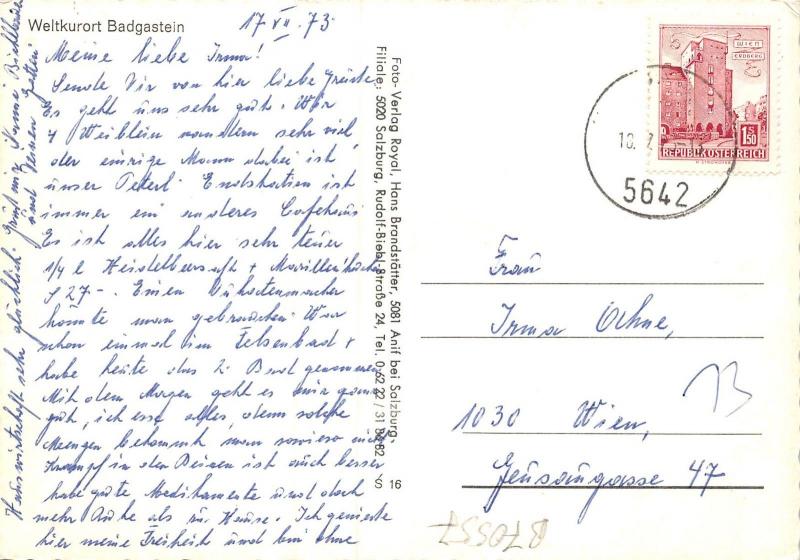 Weltkurort Badgastein
17 VII. 73
Meine liebe Irma!
Sende Dir von hier liebe Grüße
Es geht uns sehr gut. Wir
4 Weiblein wandern sehr viel
der einzige Mann dabei ist
unser Peterl. Endstation ist
immer ein anderes Cafehaus
Es ist alles hier sehr teuer
1/4 l Heidelbeersaft + Marillenkuchen
S 27-. Einen Dukatenmacher
könnte man gebrauchen. War
schon einmal im Felsenbad +
habe heute das 2. Bad genommen
Mit dem Magen geht es mir ganz
gut, ich esse alles, denn solche
Mengen bekommt man sowieso nicht
Krampf in den Beinen ist auch besser
habe gute Medikamente und doch
mehr Ruhe als zu Hause. Ich genieße
hier meine Freiheit und bin ohne
Hauswirtschaft sehr glücklich. Grüß mir
und deinen
Foto-Verlag Royal, Hans Brandstätter, 5081 Anif bei Salzburg,
Filiale: 5020 Salzburg, Rudolf-Biebl-Straße 24, Tel. 0 62 22 / 31 8 82
S 16
WIEN
ERDBERG
1S50
REPUBLIK ÖSTERREICH
5642
Frau
Irma Ochne,
1030 Wien,
Geusaugasse 47
B70557